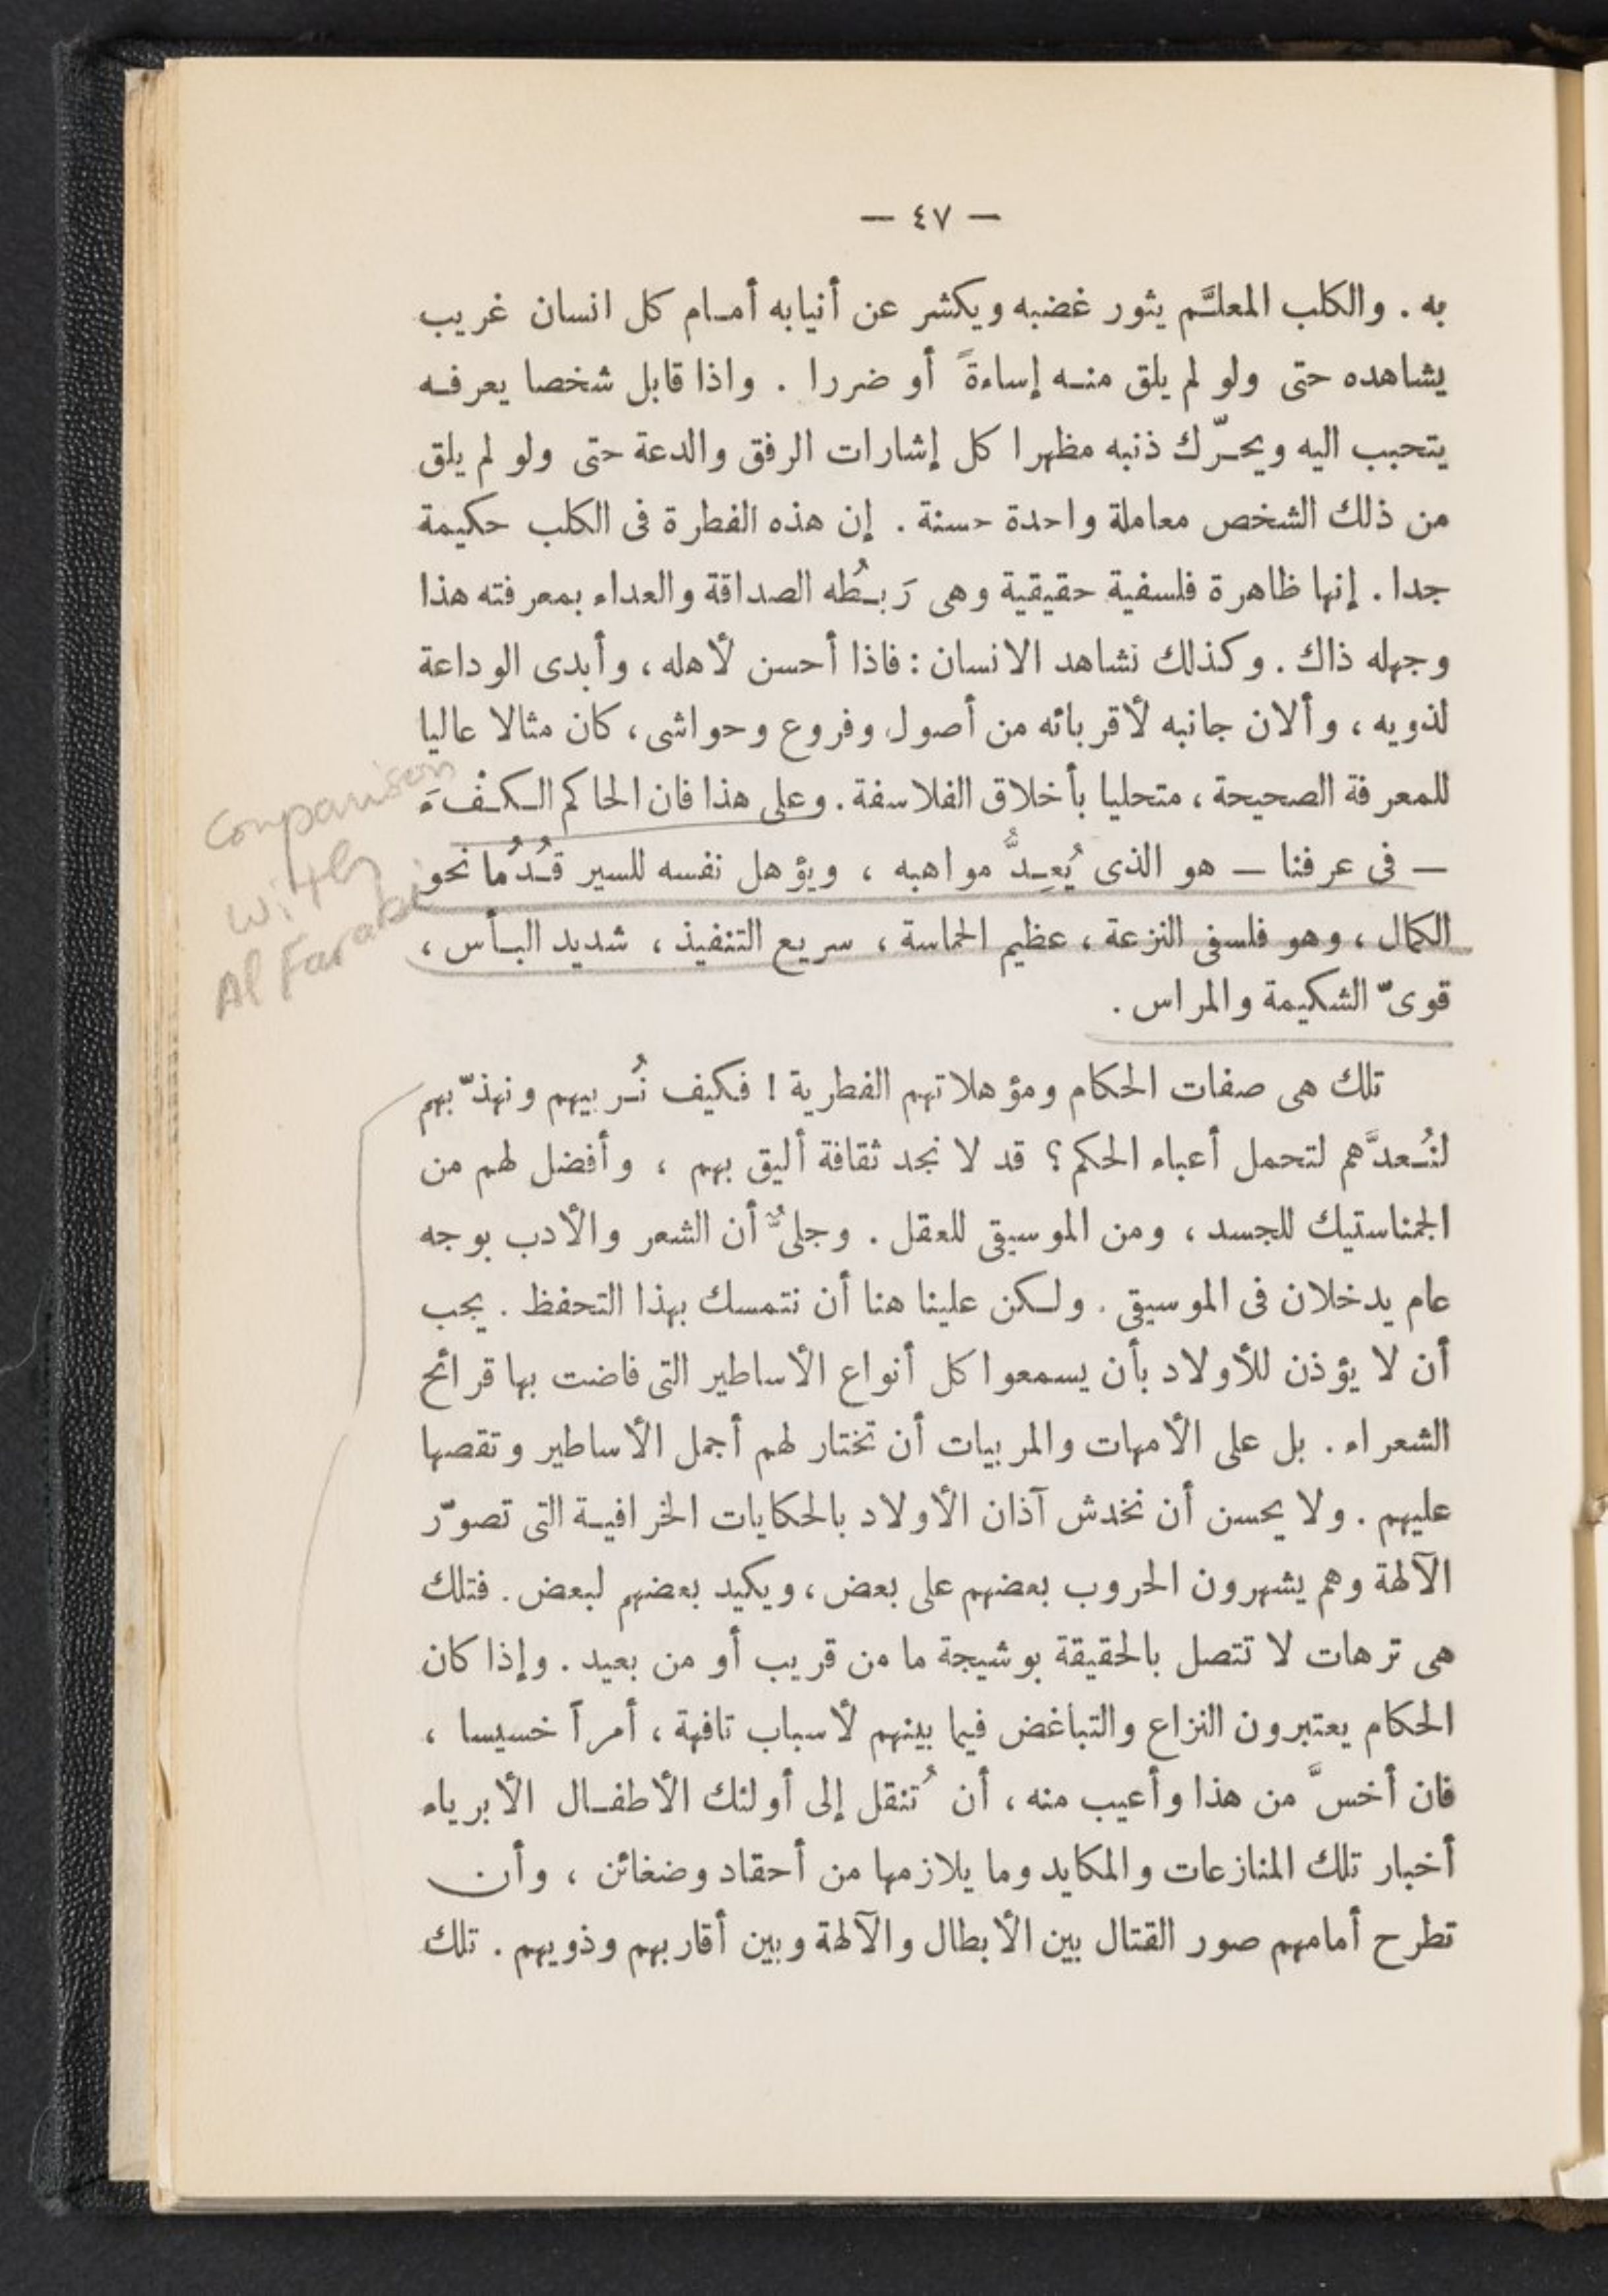 — ٤٧ —
به . والكلب المعلَّم يثور غضبه ويكشر عن أنيابه أمام كل انسان غريب
يشاهده حتى ولو لم يلق منه إساءةً أو ضررا . واذا قابل شخصا يعرفه
يتحبب اليه ويحرّك ذنبه مظهرا كل إشارات الرفق والدعة حتى ولو لم يلق
من ذلك الشخص معاملة واحدة حسنة . إن هذه الفطرة فى الكلب حكيمة
جدا . إنها ظاهرة فلسفية حقيقية وهى رَبطُه الصداقة والعداء بمعرفته هذا
وجهله ذاك . وكذلك نشاهد الانسان : فاذا أحسن لأهله ، وأبدى الوداعة
لذويه ، وألان جانبه لأقربائه من أصول وفروع وحواشى ، كان مثالا عاليا
للمعرفة الصحيحة ، متحليا بأخلاق الفلاسفة . وعلى هذا فان الحاكم الكفْءَ
— فى عرفنا — هو الذى يُعِدُّ مواهبه ، ويؤهل نفسه للسير قُدُما نحو
الكمال ، وهو فلسفى النزعة ، عظيم الحماسة ، سريع التنفيذ ، شديد البأس ،
قوىّ الشكيمة والمراس .
Comparison
with
Al Farabi
تلك هى صفات الحكام ومؤهلاتهم الفطرية ! فكيف نُربيهم ونهذّبهم
لنُعدَّهم لتحمل أعباء الحكم ؟ قد لا نجد ثقافة أليق بهم ، وأفضل لهم من
الجمناستيك للجسد ، ومن الموسيقى للعقل . وجلىٌّ أن الشعر والأدب بوجه
عام يدخلان فى الموسيقى . ولكن علينا هنا أن نتمسك بهذا التحفظ . يجب
أن لا يؤذن للأولاد بأن يسمعوا كل أنواع الأساطير التى فاضت بها قرائح
الشعراء . بل على الأمهات والمربيات أن تختار لهم أجمل الأساطير وتقصها
عليهم . ولا يحسن أن نخدش آذان الأولاد بالحكايات الخرافية التى تصوّر
الآلهة وهم يشهرون الحروب بعضهم على بعض ، ويكيد بعضهم لبعض . فتلك
هى ترهات لا تتصل بالحقيقة بوشيجة ما من قريب أو من بعيد . وإذا كان
الحكام يعتبرون النزاع والتباغض فيما بينهم لأسباب تافهة ، أمراً خسيسا ،
فان أخسَّ من هذا وأعيب منه ، أن تُنقل إلى أولئك الأطفال الأبرياء
أخبار تلك المنازعات والمكايد وما يلازمها من أحقاد وضغائن ، وأن
تطرح أمامهم صور القتال بين الأبطال والآلهة وبين أقاربهم وذويهم . تلك